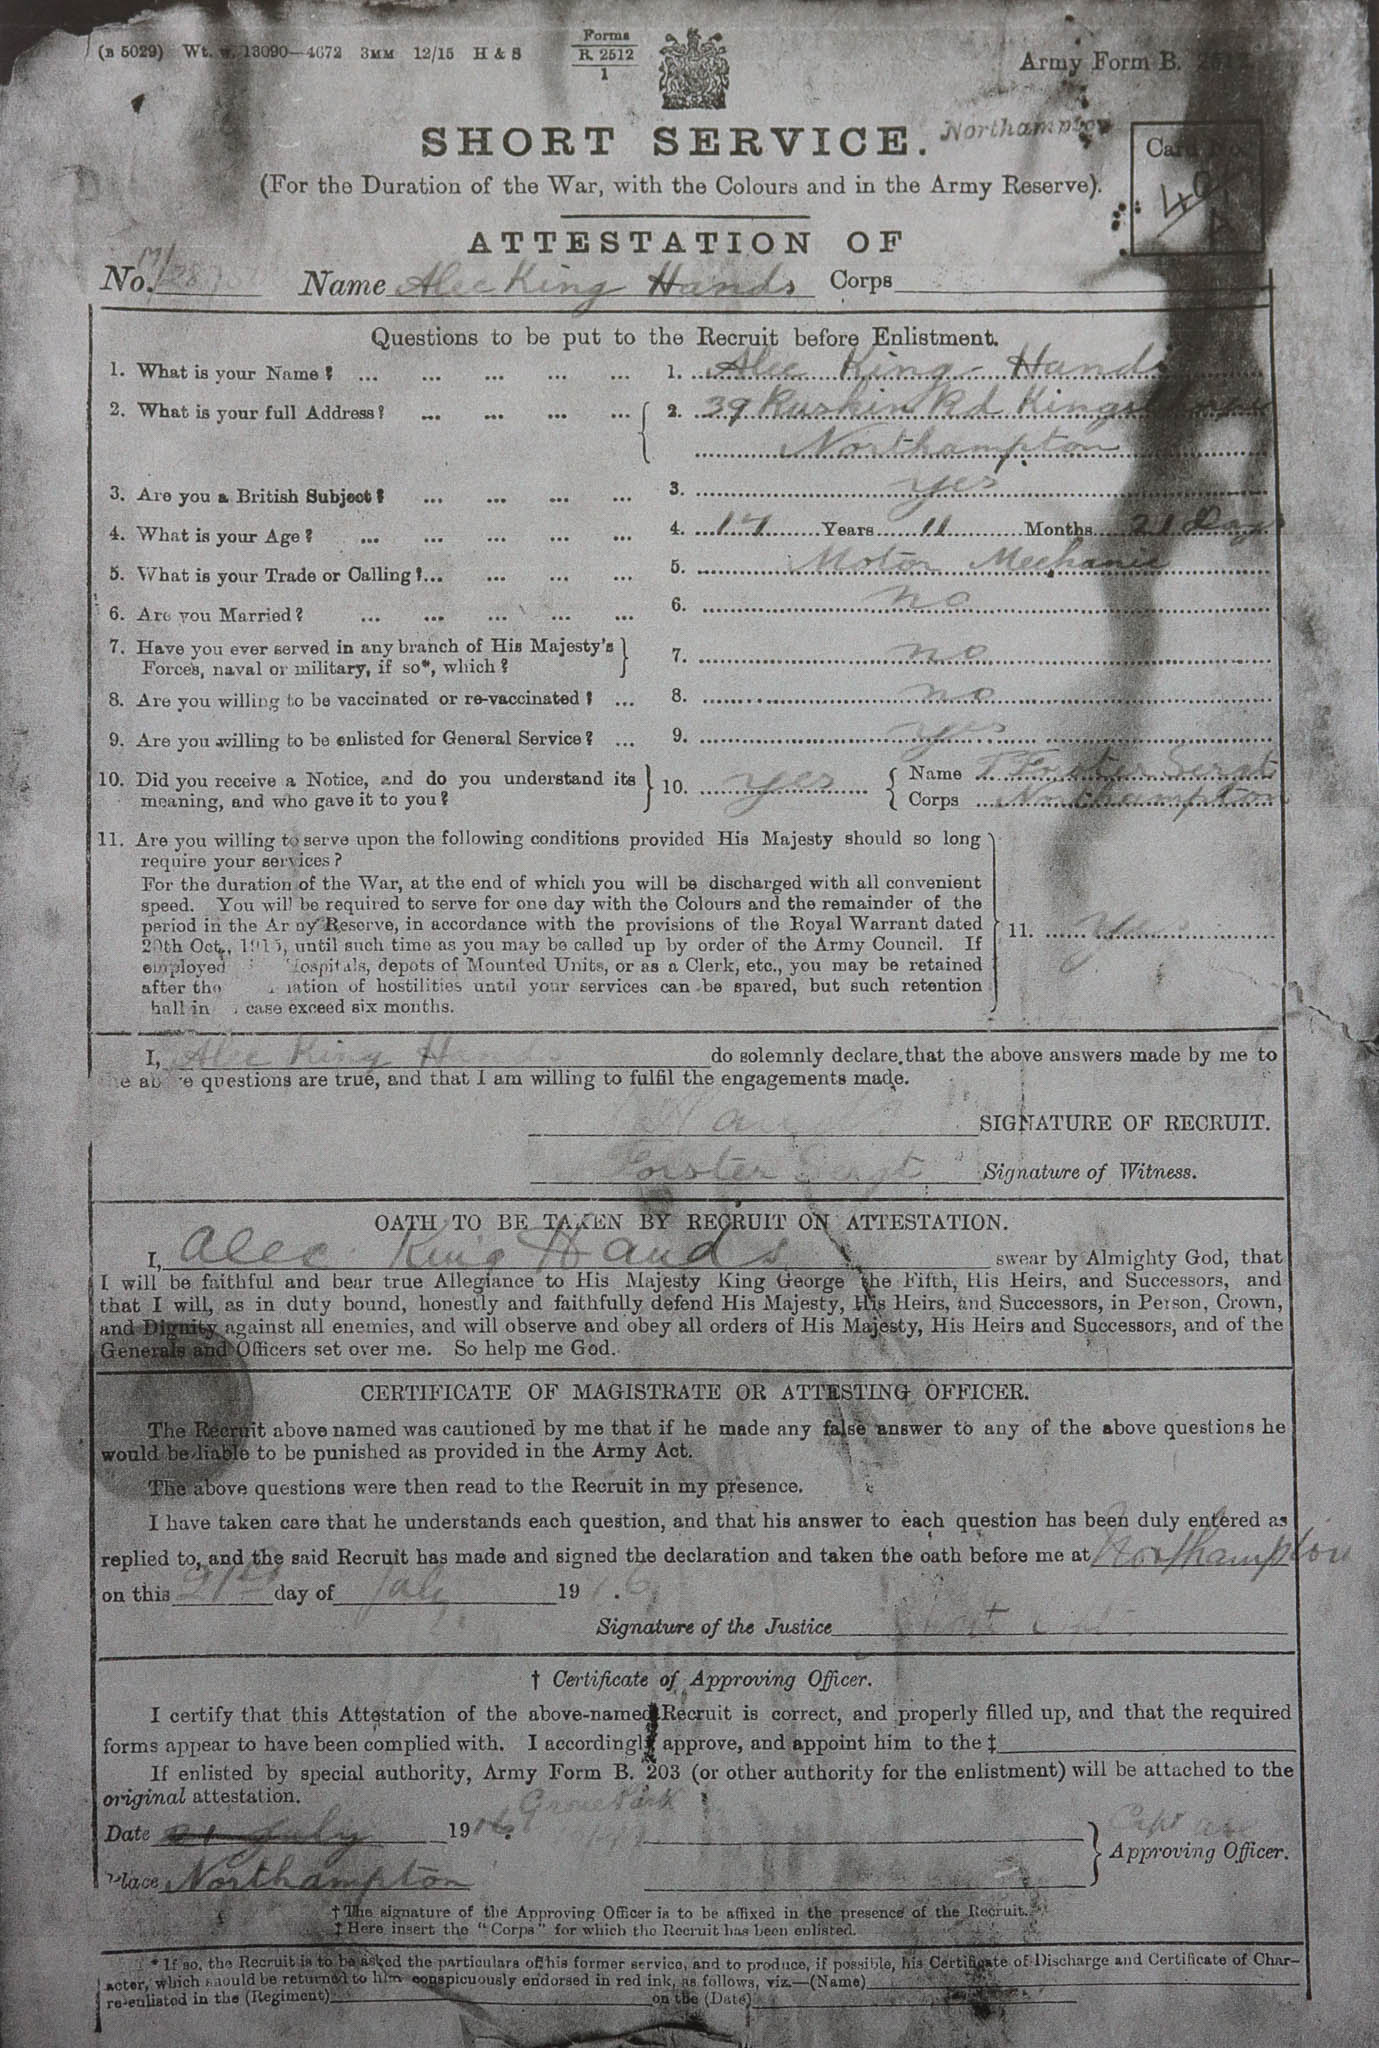 (B 5029) Wt. w. 13090—4672 3MM 12/15 H & S
Forms
R. 2512
1
Army Form B. 2512
Northampton
SHORT SERVICE.
(For the Duration of the War, with the Colours and in the Army Reserve).
Card No.
ATTESTATION OF
No. Name Alec King Hands Corps
Questions to be put to the Recruit before Enlistment.
1. What is your Name? ... 1. Alec King Hands
2. What is your full Address? ... 2. 39 Ruskin Rd Kingsthorpe
Northampton
3. Are you a British Subject? ... 3. yes
4. What is your Age? ... 4. 17 Years 11 Months 21 Days
5. What is your Trade or Calling? ... 5. Motor Mechanic
6. Are you Married? ... 6. no
7. Have you ever served in any branch of His Majesty's
Forces, naval or military, if so*, which? 7. no
8. Are you willing to be vaccinated or re-vaccinated? ... 8. no
9. Are you willing to be enlisted for General Service? ... 9. yes
10. Did you receive a Notice, and do you understand its
meaning, and who gave it to you? 10. yes Name Forster Sergt
Corps Northampton
11. Are you willing to serve upon the following conditions provided His Majesty should so long
require your services?
For the duration of the War, at the end of which you will be discharged with all convenient
speed. You will be required to serve for one day with the Colours and the remainder of the
period in the Army Reserve, in accordance with the provisions of the Royal Warrant dated
20th Oct., 1915, until such time as you may be called up by order of the Army Council. If
employed Hospitals, depots of Mounted Units, or as a Clerk, etc., you may be retained
after the ation of hostilities until your services can be spared, but such retention
hall in case exceed six months.
11. yes
I, Alec King Hands do solemnly declare that the above answers made by me to
the above questions are true, and that I am willing to fulfil the engagements made.
Hands SIGNATURE OF RECRUIT.
Forster Sergt Signature of Witness.
OATH TO BE TAKEN BY RECRUIT ON ATTESTATION.
I, Alec King Hands swear by Almighty God, that
I will be faithful and bear true Allegiance to His Majesty King George the Fifth, His Heirs, and Successors, and
that I will, as in duty bound, honestly and faithfully defend His Majesty, His Heirs, and Successors, in Person, Crown,
and Dignity against all enemies, and will observe and obey all orders of His Majesty, His Heirs and Successors, and of the
Generals and Officers set over me. So help me God.
CERTIFICATE OF MAGISTRATE OR ATTESTING OFFICER.
The Recruit above named was cautioned by me that if he made any false answer to any of the above questions he
would be liable to be punished as provided in the Army Act.
The above questions were then read to the Recruit in my presence.
I have taken care that he understands each question, and that his answer to each question has been duly entered as
replied to, and the said Recruit has made and signed the declaration and taken the oath before me at Northampton
on this 21st day of July 1916
Signature of the Justice
† Certificate of Approving Officer.
I certify that this Attestation of the above-named Recruit is correct, and properly filled up, and that the required
forms appear to have been complied with. I accordingly approve, and appoint him to the ‡
If enlisted by special authority, Army Form B. 203 (or other authority for the enlistment) will be attached to the
original attestation.
Grove Park
Date 21 July 1916 Capt
Approving Officer.
Place Northampton
† The signature of the Approving Officer is to be affixed in the presence of the Recruit.
‡ Here insert the "Corps" for which the Recruit has been enlisted.
* If so, the Recruit is to be asked the particulars of his former service, and to produce, if possible, his Certificate of Discharge and Certificate of Char-
acter, which should be returned to him conspicuously endorsed in red ink, as follows, viz.—(Name)
re-enlisted in the (Regiment) on the (Date)